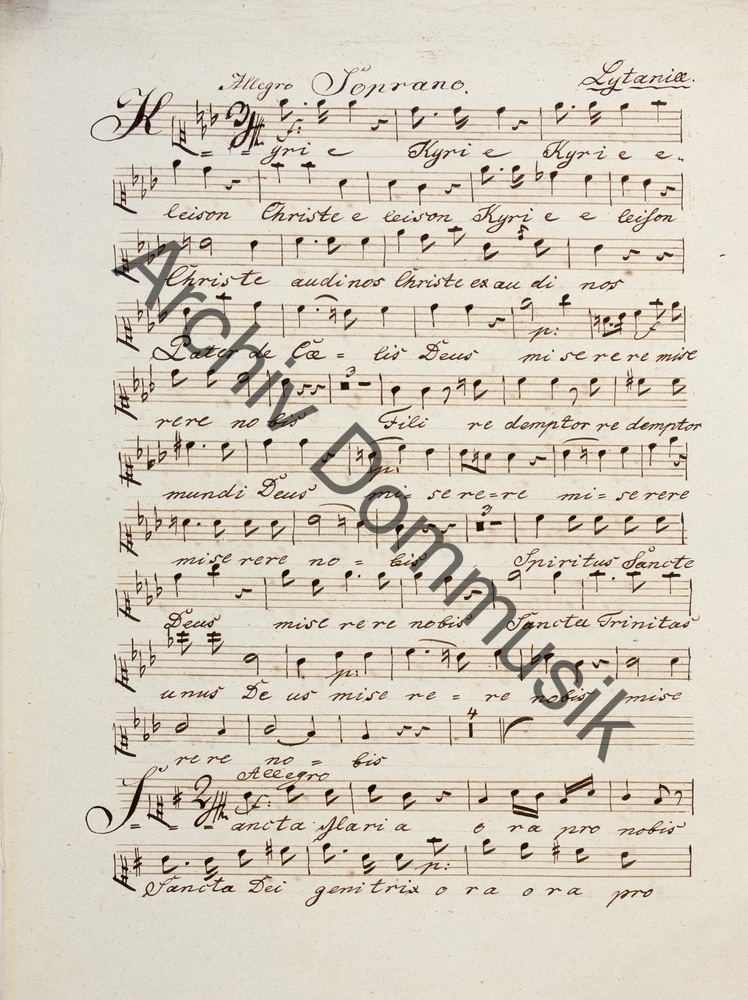 Allegro Soprano. Lytaniæ.
Kyri e Kyri e Kyri e e-
leison Christe e leison Kyri e e leison
Christe audi nos Christe ex au di nos
Pater de Cæ = lis Deus mi se re re mise
rere no bis Fili re demptor re demptor
mundi Deus mi = se re = re mi = se rere
mise rere no = bis Spiritus Sancte
Deus mise re re nobis Sancta Trinitas
unus De us mise re = re nobis mise
re re no = bis
Allegro
Sancta Maria o ra pro nobis
Sancta Dei genitrix o ra o ra pro
Archiv Dommusik